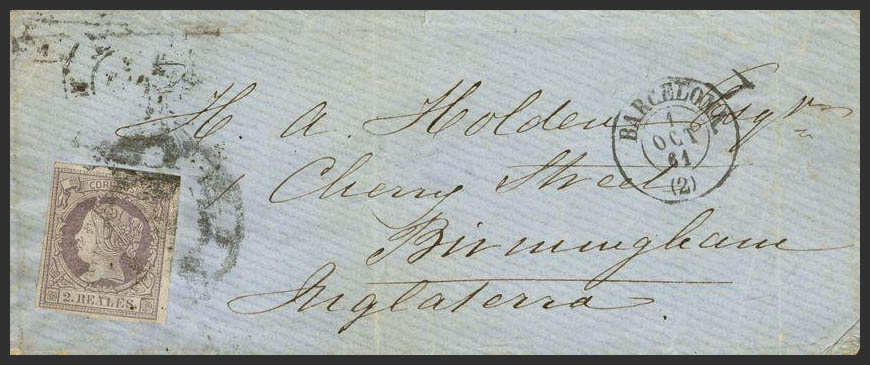 H. A. Holden Esqre
1 Cherry Street
Birmingham
Inglaterra.
BARCELONA
1
OCT
61
(2)
CORREOS
2. REALES.